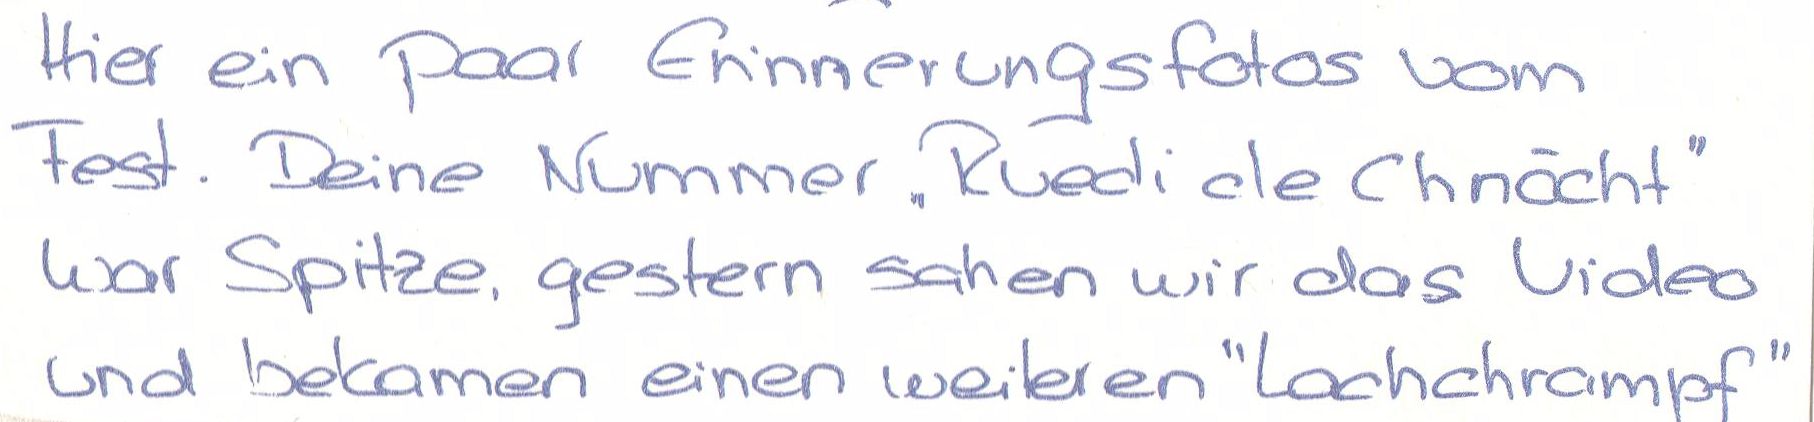 Hier ein paar Erinnerungsfotos vom
Fest. Deine Nummer „Ruedi de Chnächt"
war Spitze, gestern sahen wir das Video
und bekamen einen weiteren "Lachchrampf"